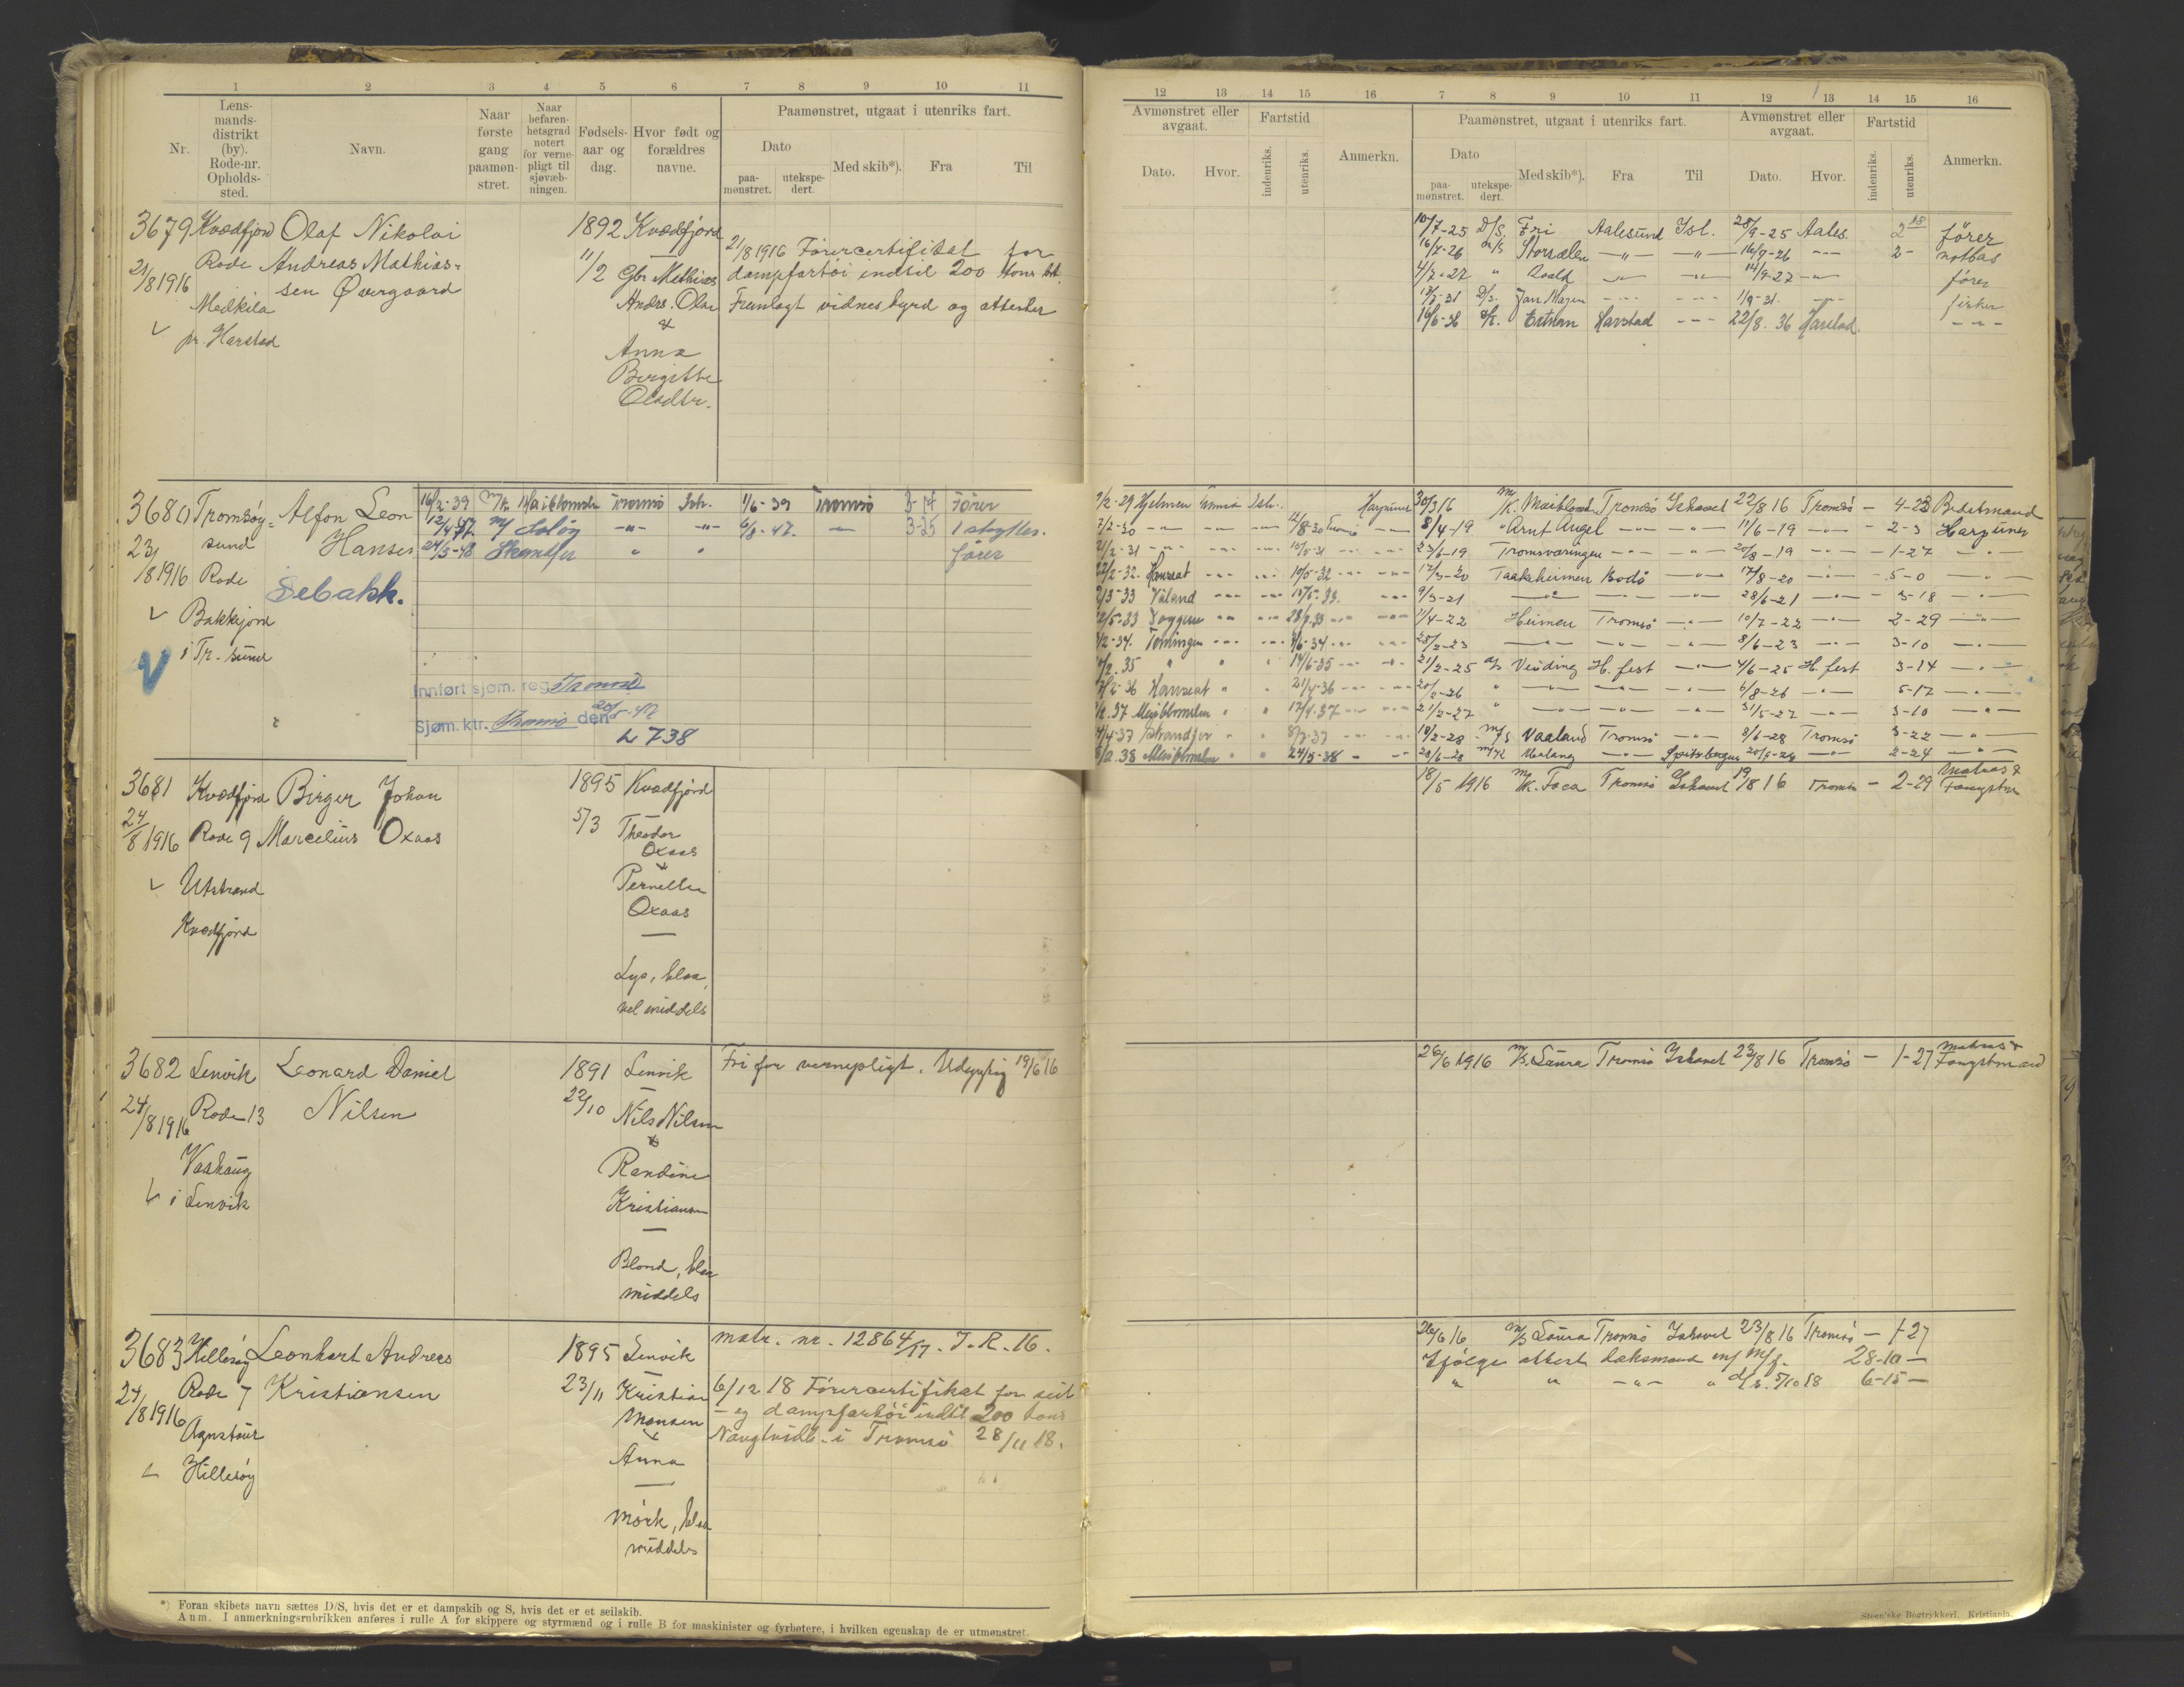 1 2 3 4 5 6 7 8 9 10 11
Nr.
Lens-
mands-
distrikt
(by).
Rode-nr.
Opholds-
sted.
Navn.
Naar
første
gang
paamøn-
stret.
Naar
befaren-
hetsgrad
notert
for verne-
pligt til
sjøvæb-
ningen.
Fødsels-
aar og
dag.
Hvor født og
forældres
navne.
Paamønstret, utgaat i utenriks fart.
Dato
paa-
mønstret.
utekspe-
dert.
Med skib*).
Fra
Til
3679 Kvædfjord Olaf Nikolai 1892 Kvædfjord
21/8 1916 Rode Andreas Mathias-
sen Øvergaard 11/2 Gbr. Mathias
Medkila Andrs. Olsen
pr. Harstad &
Anna
Birgitte
Olsdtr.
21/8 1916 Førercertifikat for
dampfartøi indtil 200 tons br.
Fremlagt vidnesbyrd og attester
3680 Tromsøy- Alfon Leon
sund Hansen
23/8 1916 Rode
Sebakk.
Bakkejord
i Tr.sund
16/2-39 M/k Maiblomsten Tromsø Ish. 1/6-39 Tromsø 3-14 Fører
12/4 47. M/ Isløy -"- -"- 6/8-47. - 3-25 1 skytter.
24/3-48 Skandfer " " fører
Innført sjøm. reg. Tromsø
Sjøm.ktr. Tromsø den 20/5-47
L 738
3681 Kvædfjord Birger Johan 1895 Kvædfjord
24/8 1916 Rode 9 Marcelius Oxaas 5/3 Theodor
Oxaas
&
Utstrand Pernelle
Oxaas
Kvædfjord
Lys, blaa,
vel middels
3682 Lenvik Leonard Daniel 1891 Lenvik
24/8 1916 Rode 13 Nilsen 22/10 Nils Nilsen
&
Vaahaug Randine
i Lenvik Kristiansen
Blond, blaa
middels
Fri for vernepligt. Udygtig 19/6 16
3683 Hillesøy Leonhart Andreas 1895 Lenvik
24/8 1916 Rode 7 Kristiansen 23/11 Kristian
Monsen
&
Hillesøy Anna
Mørk, blaa
middels
matr. nr. 12864/17. I.R. 16.
6/12 18 Førercertifikat for seil
- og dampfartøi indtil 200 tons
Navgtvidb. i Tromsø 28/11 18.
*) Foran skibets navn sættes D/S, hvis det er et dampskib og S, hvis det er et seilskib.
Anm. I anmerkningsrubrikken anføres i rulle A for skippere og styrmænd og i rulle B for maskinister og fyrbøtere, i hvilken egenskap de er utmønstret.
12 13 14 15 16 7 8 9 10 11 12 13 14 15 16
Avmønstret eller
avgaat.
Dato. Hvor.
Fartstid
indenriks.
utenriks.
Anmerkn.
Paamønstret, utgaat i utenriks fart.
Dato
paa-
mønstret.
utekspe-
dert.
Med skib*). Fra Til
Avmønstret eller
avgaat.
Dato. Hvor.
Fartstid
indenriks.
utenriks.
Anmerkn.
10/7-25 D/S. Fri Aalesund Isl. 28/9-25 Aales. 2 18 fører
16/7-26 Storsælen -"- -"- 16/9-26 -"- 2- notbas
4/7-27 " -"- -"- 14/9-27 -"- fører
D/S. Jan Mayen -"- -"- 11/9-31. -"- fisker
16/6-36 Harstad -"- 22/8. 36 Harstad -"-
2/2-29 Hjelmen Tromsø Ish. Harpuner
7/2-30 -"- -"- -"- 12/8-30 Tromsø -"-
21/2-31 -"- -"- -"- 10/5-31 -"-
22/2-32. Hanseat -"- -"- 10/5-32 -"- -"-
2/3-33 Våland -"- -"- -"-
-"- -"-
/2-34. Torningen -"- -"- /6-34 -"-
/2. 35 " " " 14/6-35 -"- -"-
/2-36 Hanseat " " 21/4-36 -"- -"-
/2. 37 Maiblomsten " "
/4-37
/2. 38 Maiblomsten " " 24/5-38 - -"-
30/3 16 M/K. Maiblomst Tromsø Ishavet 22/8 16 Tromsø - 4-23 Bedstmand
8/4-19 " Arnt Angel -"- -"- 11/6-19 -"- - 2-3 Harpuner
23/6-19 Tromsværingen -"- -"- 20/8-19 -"- - 1-27 -"-
17/3-20 Taakeheimen Bodø -"- 17/8-20 -"- 5-0 -"-
9/3-21 -"- -"- -"- 28/6-21 -"- 3-18 -"-
11/4-22 Heimen Tromsø -"- 10/7-22 -"- 2-29 -"-
28/2-23 -"- -"- -"- 8/6-23 -"- 3-10 -"-
21/2-25 Veiding H.fest -"- 4/6-25 H.fest 3-14 -"-
20/2-26 " -"- -"- -"- 6/8-26 -"- 5-17 -"-
21/2-27 " -"- -"- -"- 31/5-27 -"- 3-10 -"-
M/S Vaaland Tromsø -"- 8/6-28 Tromsø 3-22 -"-
M/K -"- Spitsbergen -"- 2-24 -"-
18/5 1916 M/K. Foca Tromsø Ishavet 19/8 16 Tromsø - 2-29 Matros &
Fangstm
26/6 1916 M/S. Laura Tromsø Ishavet 23/8 16 Tromsø - 1-27 Matros &
Fangstmand
26/6 16 M/S Laura Tromsø Ishavet 23/8 16 Tromsø - 1-27
Ifølge attest baksmand m/ M/f. 28-10 -
" " -"- " d/s. 5/10 18 6-15 -
Steen'ske Bogtrykkeri. Kristiania.